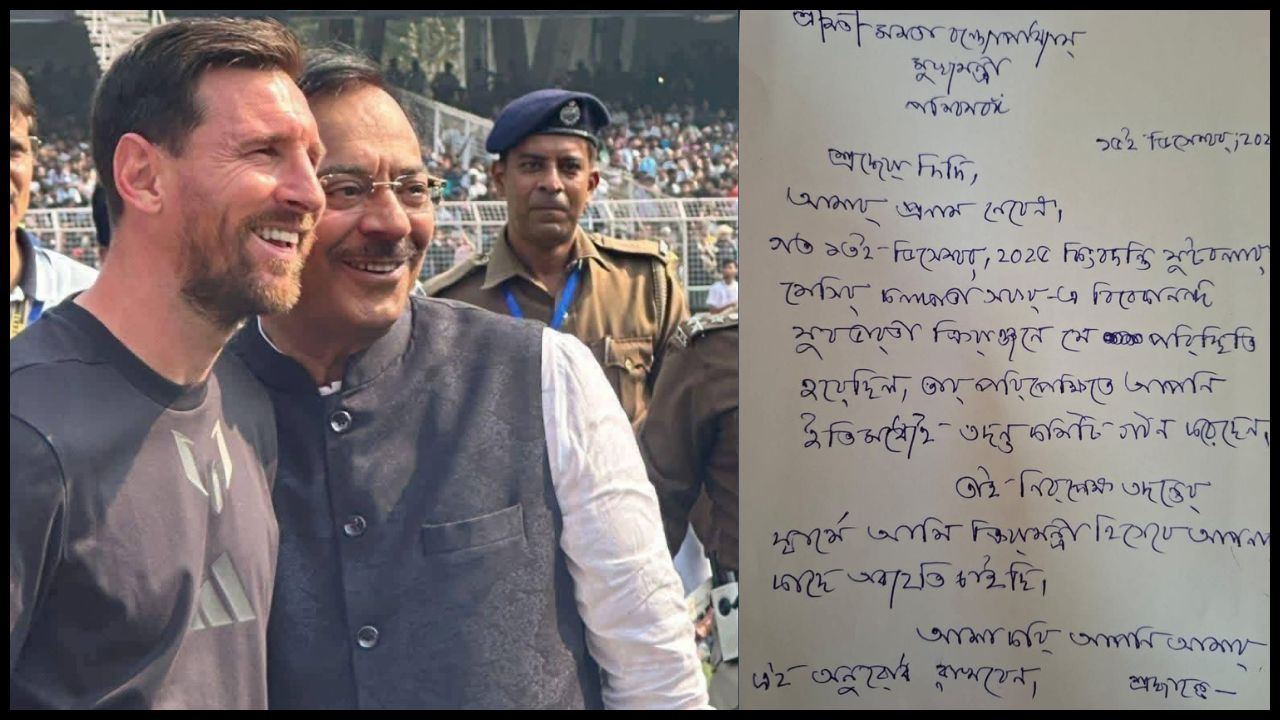 শ্রীমতী মমতা বন্দ্যোপাধ্যায়
মুখ্যমন্ত্রী
পশ্চিমবঙ্গ
১৫ই ডিসেম্বর, ২০২
শ্রদ্ধেয় দিদি,
আমার প্রনাম নেবেন।
গত ১৩ই ডিসেম্বর, ২০২৫ কিংবদন্তি ফুটবলার
মেসির কলকাতা সফর-এ বিবেকানন্দ
যুবভারতী ক্রিড়াঙ্গনে যে পরিস্থিতি
হয়েছিল, তার পরিপেক্ষিতে আপনি
ইতিমধ্যেই তদন্ত কমিটি গঠন করেছেন।
তাই নিরপেক্ষ তদন্তের
স্বার্থে আমি ক্রিড়ামন্ত্রী হিসেবে আপনা
কাছে অব্যহতি চাইছি।
আশা করি আপনি আমার
এই অনুরোধ রাখবেন। শ্রদ্ধান্তে—